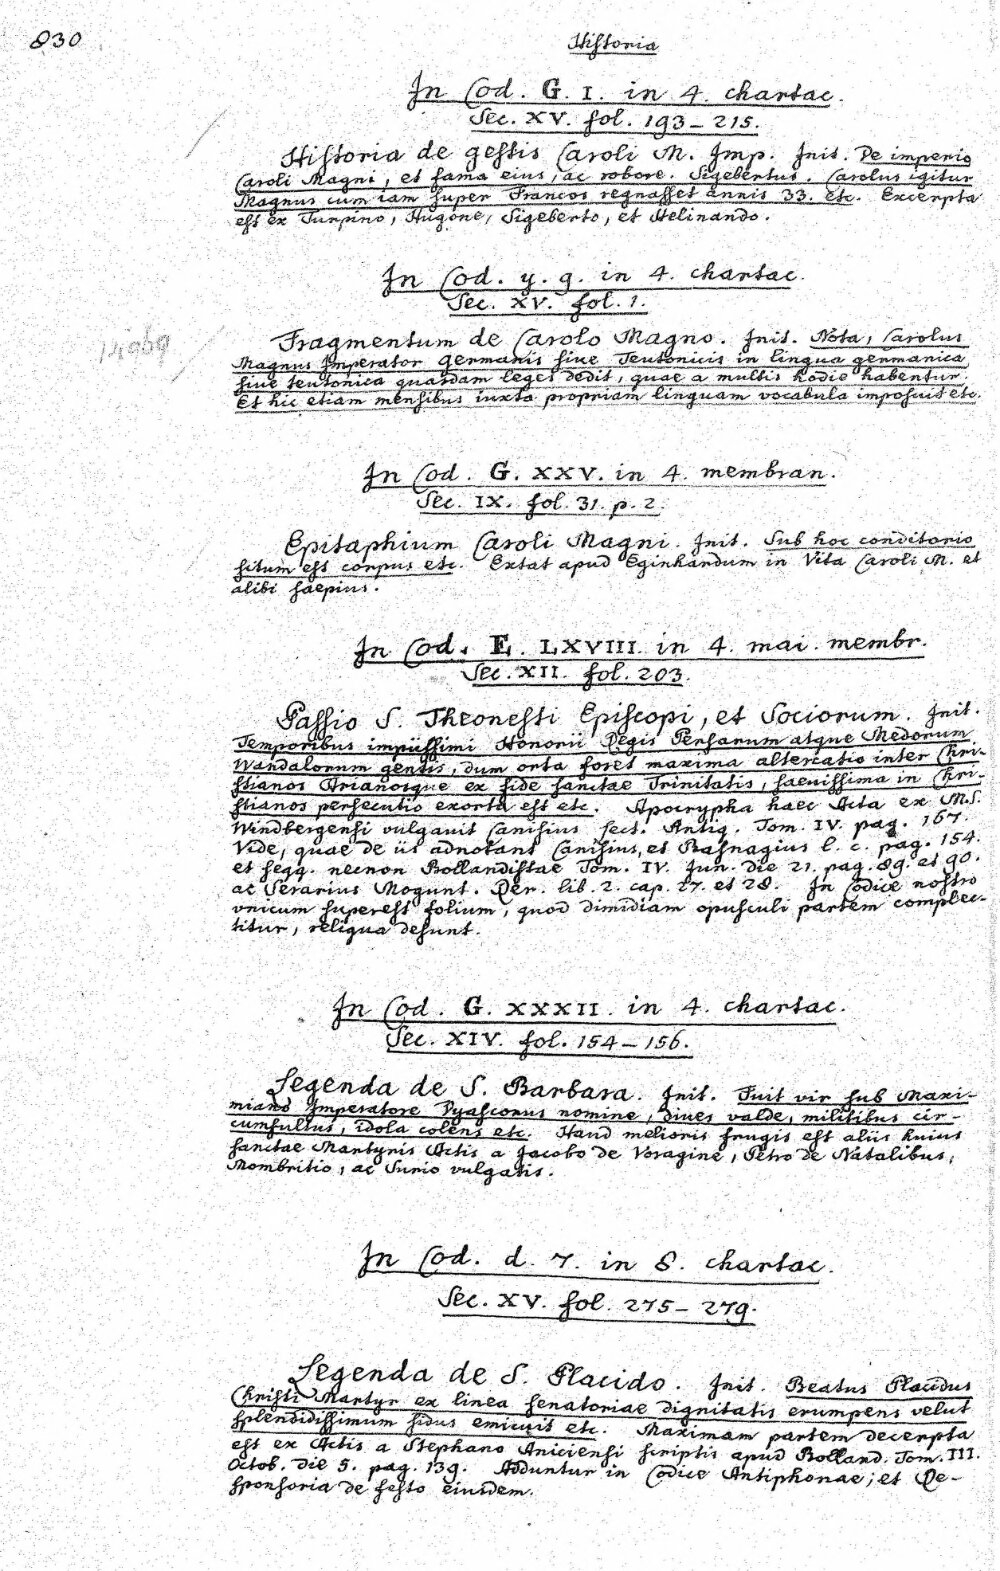 830
Historia
In Cod. G. I. in 4. chartac.
Sec. XV. fol. 193–215.
Historia de gestis Caroli M. Imp. Init. De imperio
Caroli Magni, et fama eius, ac robore. Sigebertus. Carolus igitur
Magnus cum iam super Francos regnasset annis 33. etc. Excerpta
est ex Turpino, Hugone, Sigeberto, et Helinando.
In Cod. y. g. in 4. chartac.
Sec. XV. fol. 1.
Fragmentum de Carolo Magno. Init. Nota, Carolus
Magnus Imperator Germanis siue Teutonicis in lingua germanica
siue teutonica quasdam leges dedit, quae a multis hodie habentur.
Et hic etiam mensibus iuxta propriam linguam vocabula imposuit etc.
In Cod. G. XXV. in 4. membran.
Sec. IX. fol. 31. p. 2.
Epitaphium Caroli Magni. Init. Sub hoc conditorio
situm est corpus etc. Extat apud Eginhardum in Vita Caroli M. et
alibi saepius.
In Cod. E. LXVIII. in 4. mai. membr.
Sec. XII. fol. 203.
Passio S. Theonesti Episcopi, et Sociorum. Init.
Temporibus impiissimi Honorii Regis Persarum atque Medorum
Wandalorum gentis, dum orta foret maxima altercatio inter Chri-
stianos Arianosque ex fide sanctae Trinitatis, saeuissima in Chri-
stianos persecutio exorta est etc. Apocrypha haec Acta ex MS.
Windbergensi vulgauit Canisius Lect. Antiq. Tom. IV. pag. 167.
Vide, quae de iis adnotant Canisius, et Basnagius l. c. pag. 154.
et seqq. necnon Bollandistae Tom. IV. Jun. die 21. pag. 89. et 90.
ac Serarius Mogunt. Rer. lib. 2. cap. 27. et 28. In Codice nostro
vnicum superest folium, quod dimidiam opusculi partem complec-
titur, reliqua desunt.
In Cod. G. XXXII. in 4. chartac.
Sec. XIV. fol. 154–156.
Legenda de S. Barbara. Init. Fuit vir sub Maxi-
miano Imperatore Dyascorus nomine, diues valde, militibus cir-
cumfultus, idola colens etc. Haud melioris frugis est aliis huius
sanctae Martyris Actis a Jacobo de Voragine, Petro de Natalibus,
Mombritio, ac Surio vulgatis.
In Cod. d. 7. in 8. chartac.
Sec. XV. fol. 275–279.
Legenda de S. Placido. Init. Beatus Placidus
Christi Martyr ex linea senatoriae dignitatis erumpens velut
splendidissimum sidus emicuit etc. Maximam partem decerpta
est ex Actis a Stephano Aniciensi scriptis apud Bolland. Tom. III.
Octob. die 5. pag. 139. Adduntur in Codice Antiphonae, et Re-
sponsoria de festo eiusdem.